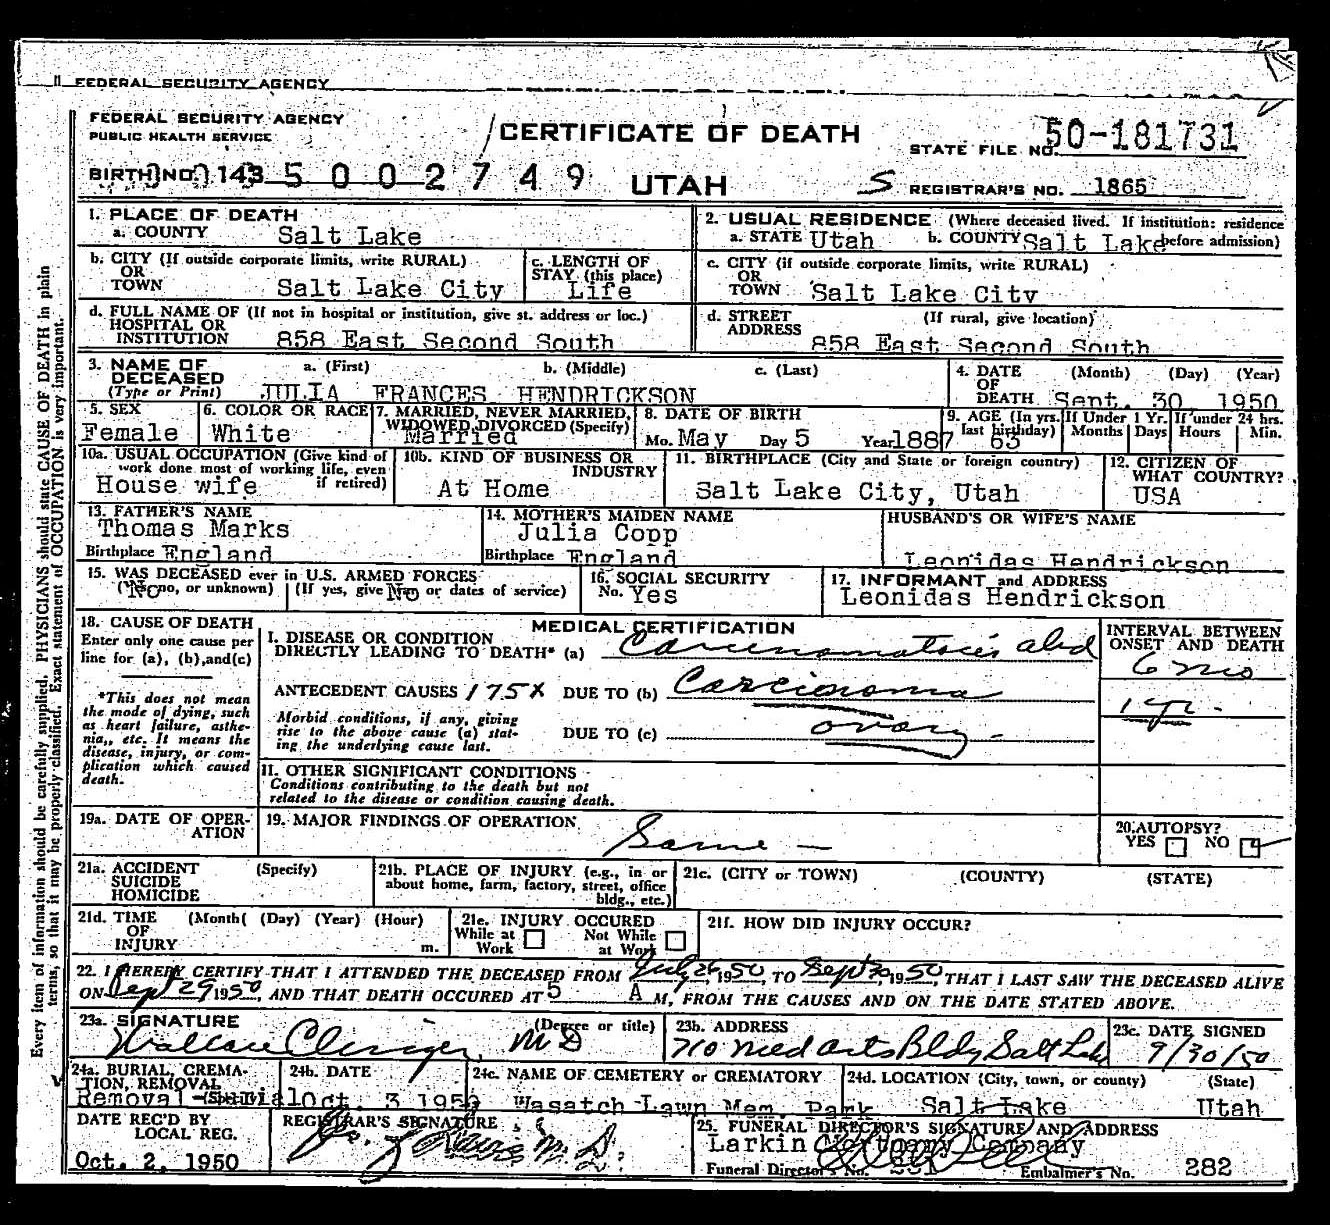 FEDERAL SECURITY AGENCY
FEDERAL SECURITY AGENCY
PUBLIC HEALTH SERVICE
CERTIFICATE OF DEATH
STATE FILE NO. 50-181731
BIRTH NO. 143 5002749
UTAH
S REGISTRAR'S NO. 1865
1. PLACE OF DEATH
a. COUNTY Salt Lake
2. USUAL RESIDENCE (Where deceased lived. If institution: residence before admission)
a. STATE Utah b. COUNTY Salt Lake
b. CITY (If outside corporate limits, write RURAL) OR TOWN Salt Lake City
c. LENGTH OF STAY (this place) Life
c. CITY (if outside corporate limits, write RURAL) OR TOWN Salt Lake City
d. FULL NAME OF (If not in hospital or institution, give st. address or loc.) HOSPITAL OR INSTITUTION 858 East Second South
d. STREET ADDRESS (If rural, give location) 858 East Second South
3. NAME OF DECEASED (Type or Print) a. (First) b. (Middle) c. (Last)
JULIA FRANCES HENDRICKSON
4. DATE OF DEATH (Month) (Day) (Year)
Sept. 30 1950
5. SEX Female
6. COLOR OR RACE White
7. MARRIED, NEVER MARRIED, WIDOWED, DIVORCED (Specify) Married
8. DATE OF BIRTH
Mo. May Day 5 Year 1887
9. AGE (In yrs. last birthday) 63
If Under 1 Yr. Months Days
If under 24 hrs. Hours Min.
10a. USUAL OCCUPATION (Give kind of work done most of working life, even if retired) House wife
10b. KIND OF BUSINESS OR INDUSTRY At Home
11. BIRTHPLACE (City and State or foreign country)
Salt Lake City, Utah
12. CITIZEN OF WHAT COUNTRY? USA
13. FATHER'S NAME
Thomas Marks
Birthplace England
14. MOTHER'S MAIDEN NAME
Julia Copp
Birthplace England
HUSBAND'S OR WIFE'S NAME
Leonidas Hendrickson
15. WAS DECEASED ever in U.S. ARMED FORCES
(Yes, no, or unknown) No (If yes, give war or dates of service) No
16. SOCIAL SECURITY No. Yes
17. INFORMANT and ADDRESS
Leonidas Hendrickson
18. CAUSE OF DEATH
Enter only one cause per line for (a), (b), and (c)
*This does not mean the mode of dying, such as heart failure, asthenia,, etc. It means the disease, injury, or complication which caused death.
MEDICAL CERTIFICATION
INTERVAL BETWEEN ONSET AND DEATH
I. DISEASE OR CONDITION DIRECTLY LEADING TO DEATH* (a) Carcinomatosis abd 6 mo
ANTECEDENT CAUSES 175X DUE TO (b) Carcinoma 1 yr.
Morbid conditions, if any, giving rise to the above cause (a) stating the underlying cause last. DUE TO (c) ovary.
II. OTHER SIGNIFICANT CONDITIONS
Conditions contributing to the death but not related to the disease or condition causing death.
19a. DATE OF OPERATION
19. MAJOR FINDINGS OF OPERATION Same —
20. AUTOPSY?
YES NO
21a. ACCIDENT SUICIDE HOMICIDE (Specify)
21b. PLACE OF INJURY (e.g., in or about home, farm, factory, street, office bldg., etc.)
21c. (CITY or TOWN) (COUNTY) (STATE)
21d. TIME OF INJURY (Month( (Day) (Year) (Hour) m.
21e. INJURY OCCURED
While at Work Not While at Work
21f. HOW DID INJURY OCCUR?
22. I HEREBY CERTIFY THAT I ATTENDED THE DECEASED FROM July 26, 1950, TO Sept 30, 1950, THAT I LAST SAW THE DECEASED ALIVE
ON Sept 29 1950, AND THAT DEATH OCCURED AT 5 A M, FROM THE CAUSES AND ON THE DATE STATED ABOVE.
23a. SIGNATURE (Degree or title)
Wallace MD
23b. ADDRESS
710 Med Arts Bldg Salt Lake
23c. DATE SIGNED
9/30/50
24a. BURIAL, CREMATION, REMOVAL (Specify)
Removal-Burial
24b. DATE
Oct. 3 1950
24c. NAME OF CEMETERY or CREMATORY
Wasatch Lawn Mem. Park
24d. LOCATION (City, town, or county) (State)
Salt Lake Utah
DATE REC'D BY LOCAL REG.
Oct. 2, 1950
REGISTRAR'S SIGNATURE
M.D.
25. FUNERAL DIRECTOR'S SIGNATURE AND ADDRESS
Larkin Mortuary Company
Funeral Director's No. 331 Embalmer's No. 282
Every item of information should be carefully supplied. PHYSICIANS should state CAUSE OF DEATH in plain
terms, so that it may be properly classified. Exact statement of OCCUPATION is very important.